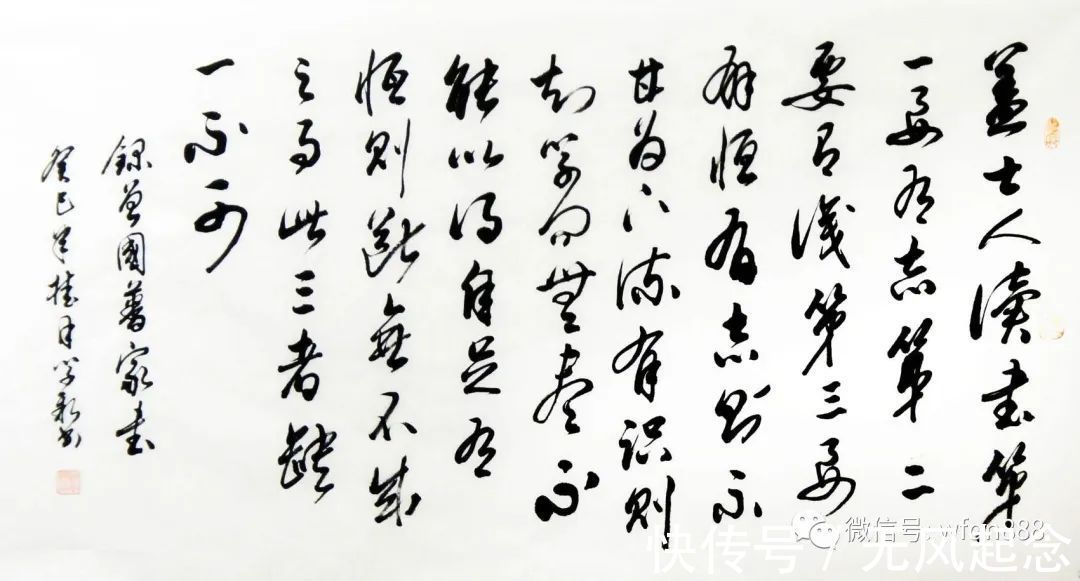 盖士人读书第
一要有志第二
要有識第三要
有恒有志则不
甘为下流有识则
知学问無尽不
能以得自足有
恒则断無不成
之事此三者缺
一不可
録曾國藩家书
癸巳年桂月学
微信号:
快传号 / 无风起念